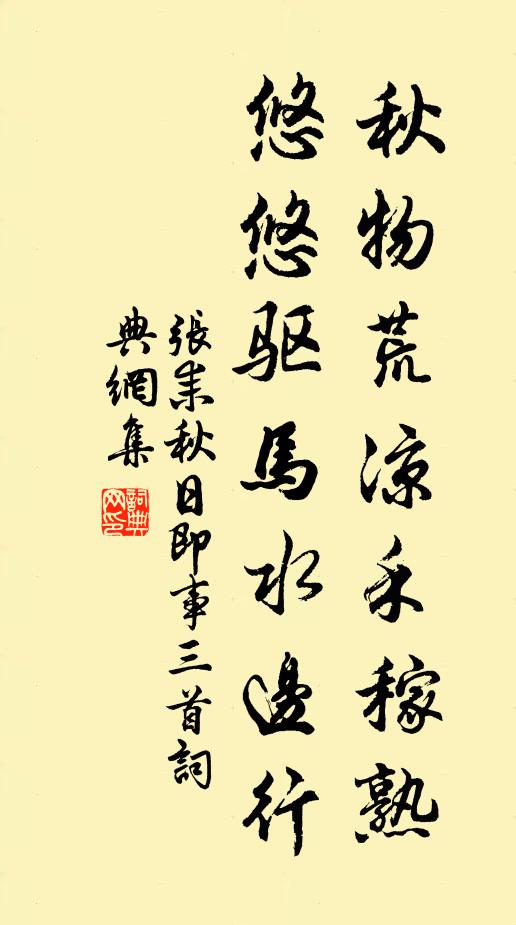 秋物荒涼禾稼熟
悠悠驱馬水邊行
張耒秋日即事三首詞
典網集
詞典网印